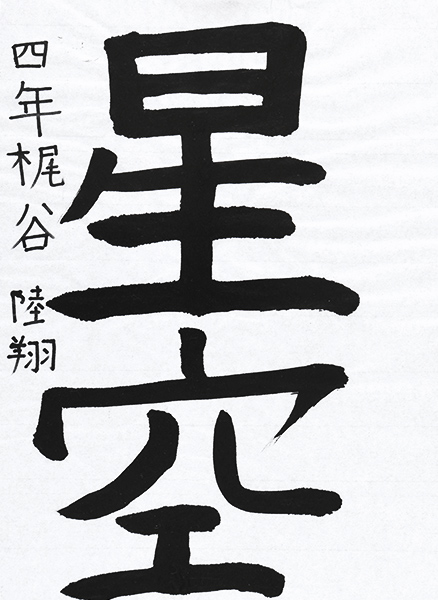 星空
四年梶谷 陸翔